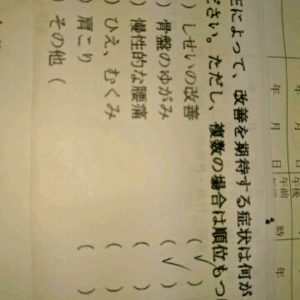 年 月 日 時
年 月 日 午前 午後
によって、改善を期待する症状は何が
ださい。ただし、複数の場合は順位もつ
) しせいの改善 ( ✓ )
) 骨盤のゆがみ ( ✓ )
) 慢性的な腰痛 ( )
) ひえ、むくみ ( )
) 肩こり ( )
) その他 (